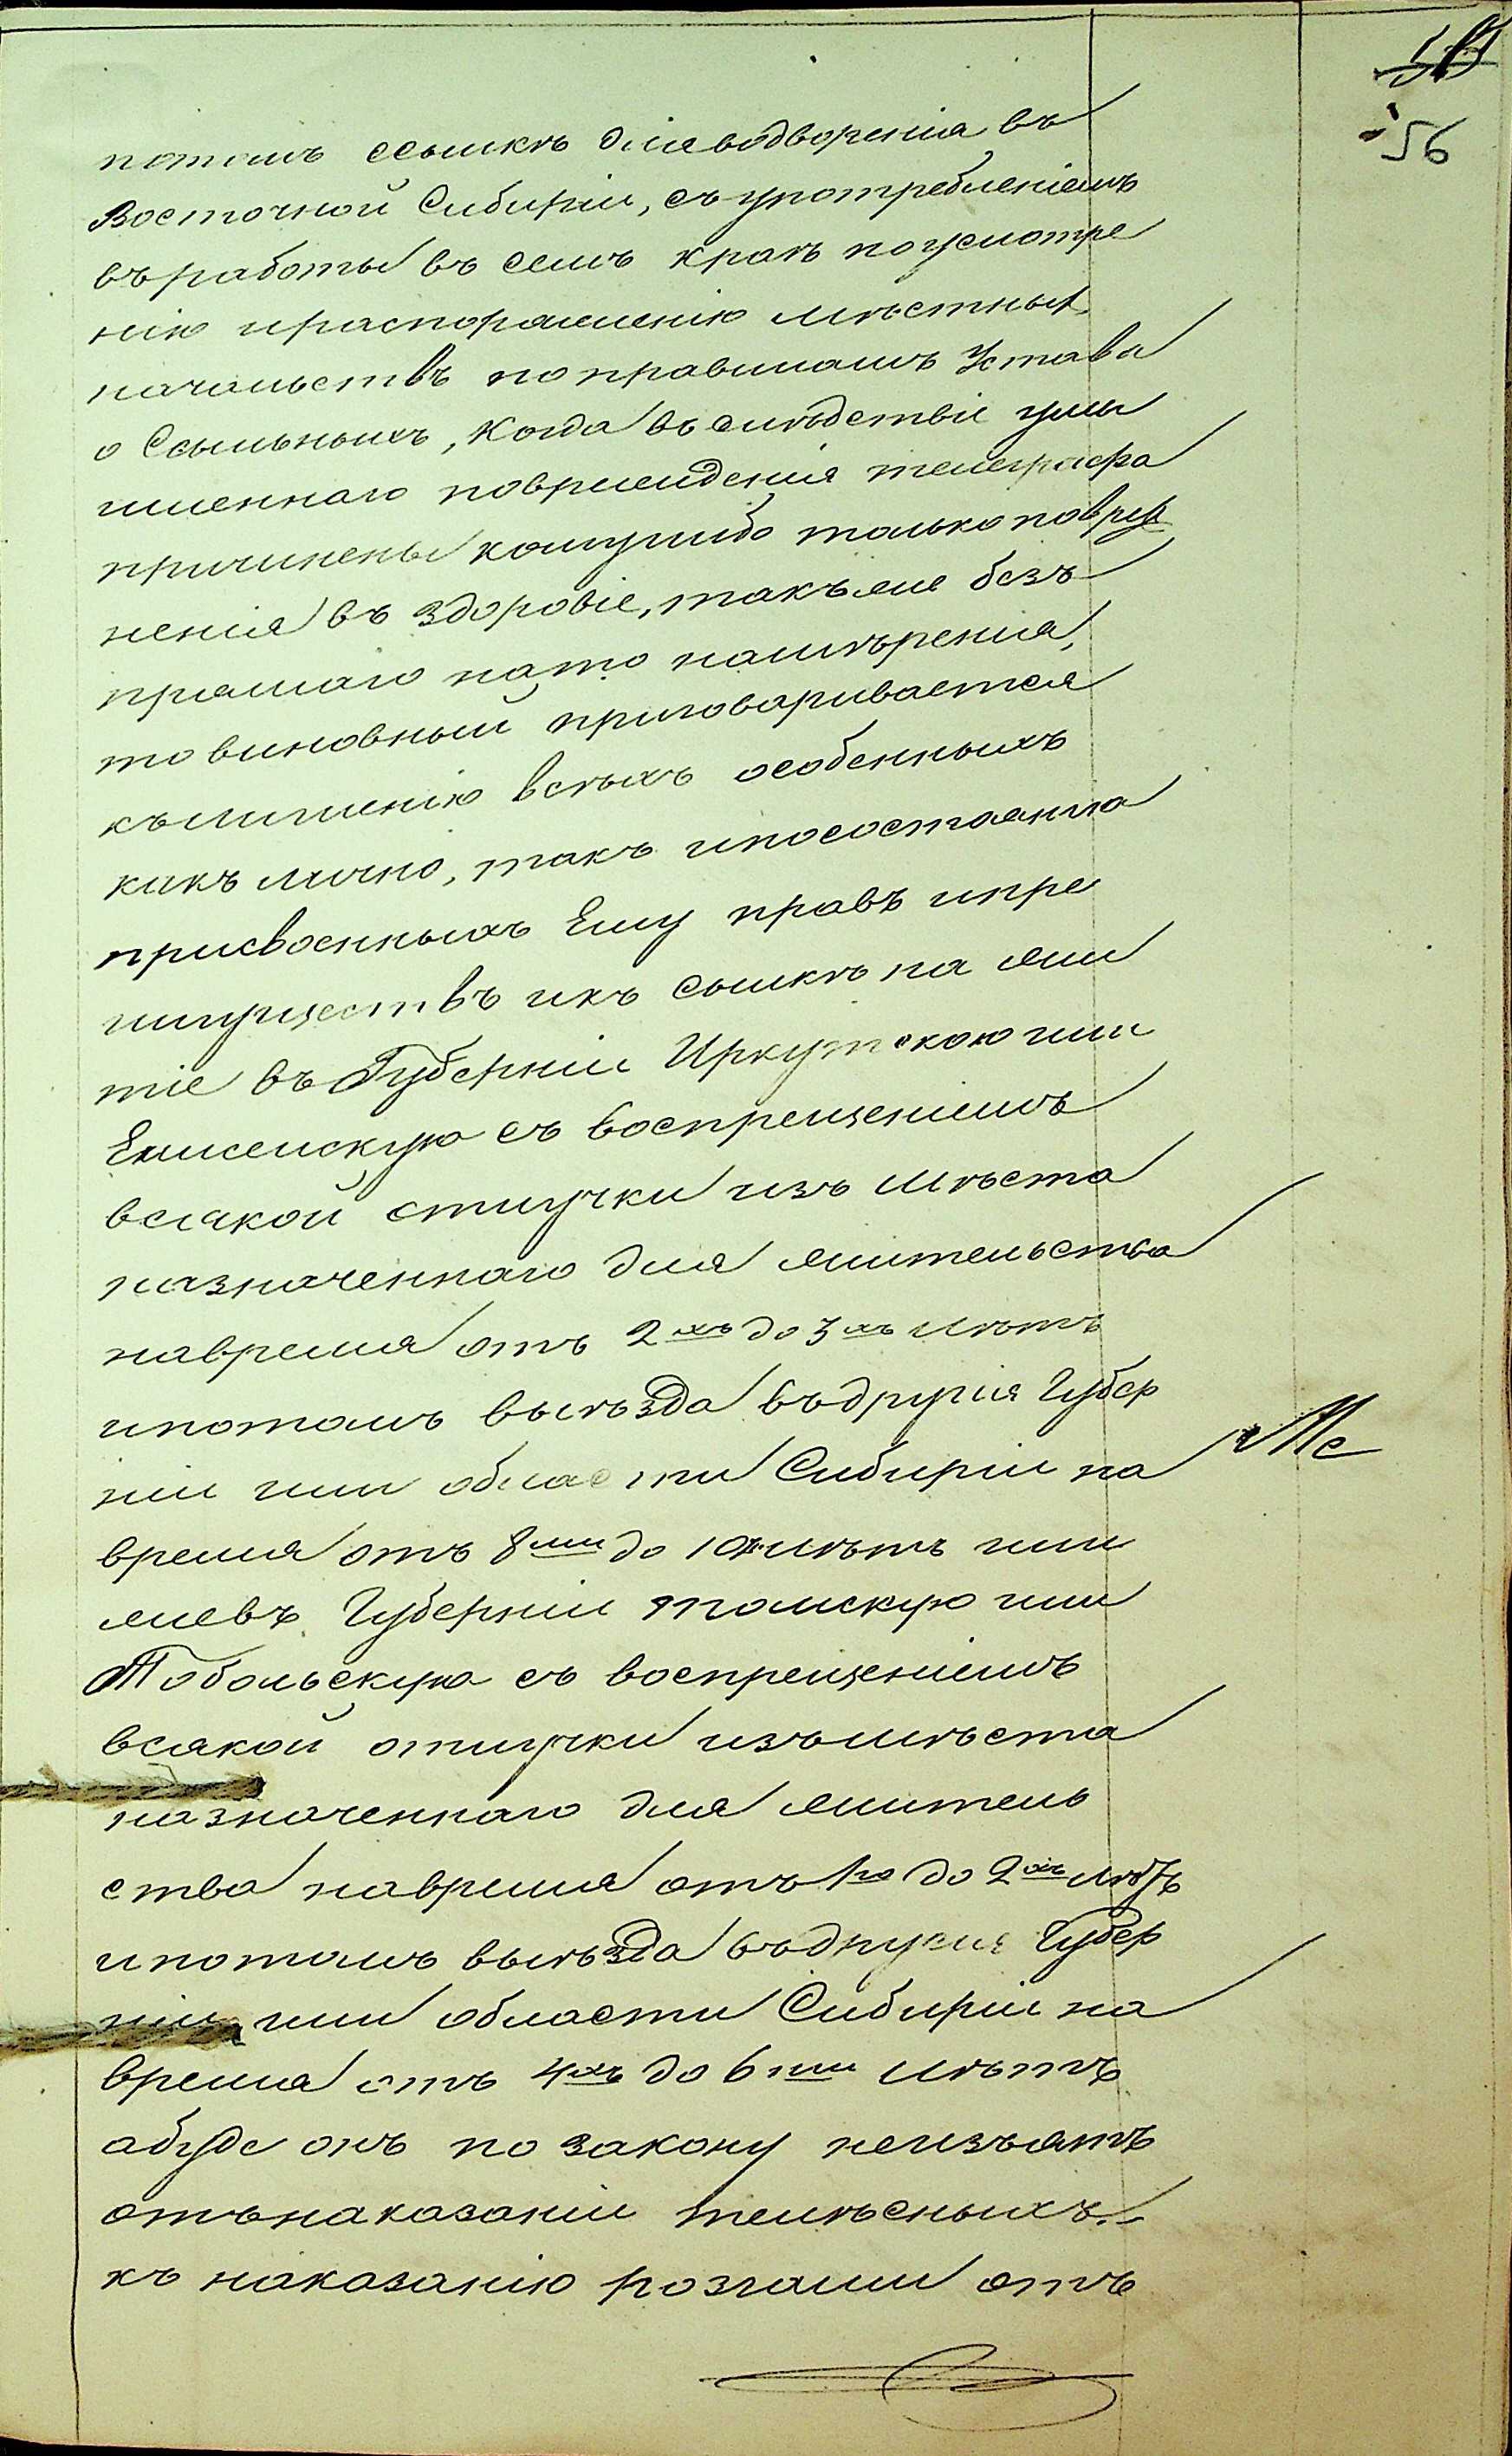 56
потомъ ссылкѣ для водворенія въ
Восточной Сибири, съ употребленіемъ
въ работы въ семъ краѣ по усмотре
нію и распоряженію мѣстныхъ
начальствъ по правиламъ Устава
о Ссыльныхъ, когда въ слѣдствіи умы
шленнаго поврежденія телеграфа
причинены комулибо только повреж
ненія въ здоровіе, также безъ
прямаго на то намѣренія,
то виновный приговаривается
къ лишенію всѣхъ особенныхъ
какъ лично, такъ и по состоянію
присвоенныхъ Ему правъ и пре
имуществъ и къ сылкѣ на жи
тіе въ Губерніи Иркутскою или
Енисейскую съ воспрещеніемъ
всякой отлучки изъ мѣста
назначеннаго для жительства
на время отъ 2хъ до 3хъ лѣтъ
и потомъ выѣзда въ другія Губер
ніи или области Сибири на
время отъ 8ми до 10 лѣтъ или
же въ Губерніи Томскую или
Тобольскую съ воспрещеніемъ
всякой отлучки изъ мѣста
назначеннаго для житель
ства на время отъ 1го до 2хъ лѣтъ
и потомъ выѣзда въ другія Губер
ніи или области Сибири на
время отъ 4хъ до 6ти лѣтъ
а буде онъ по закону не изъятъ
отъ наказаніи телѣсныхъ
къ наказанію розгами отъ